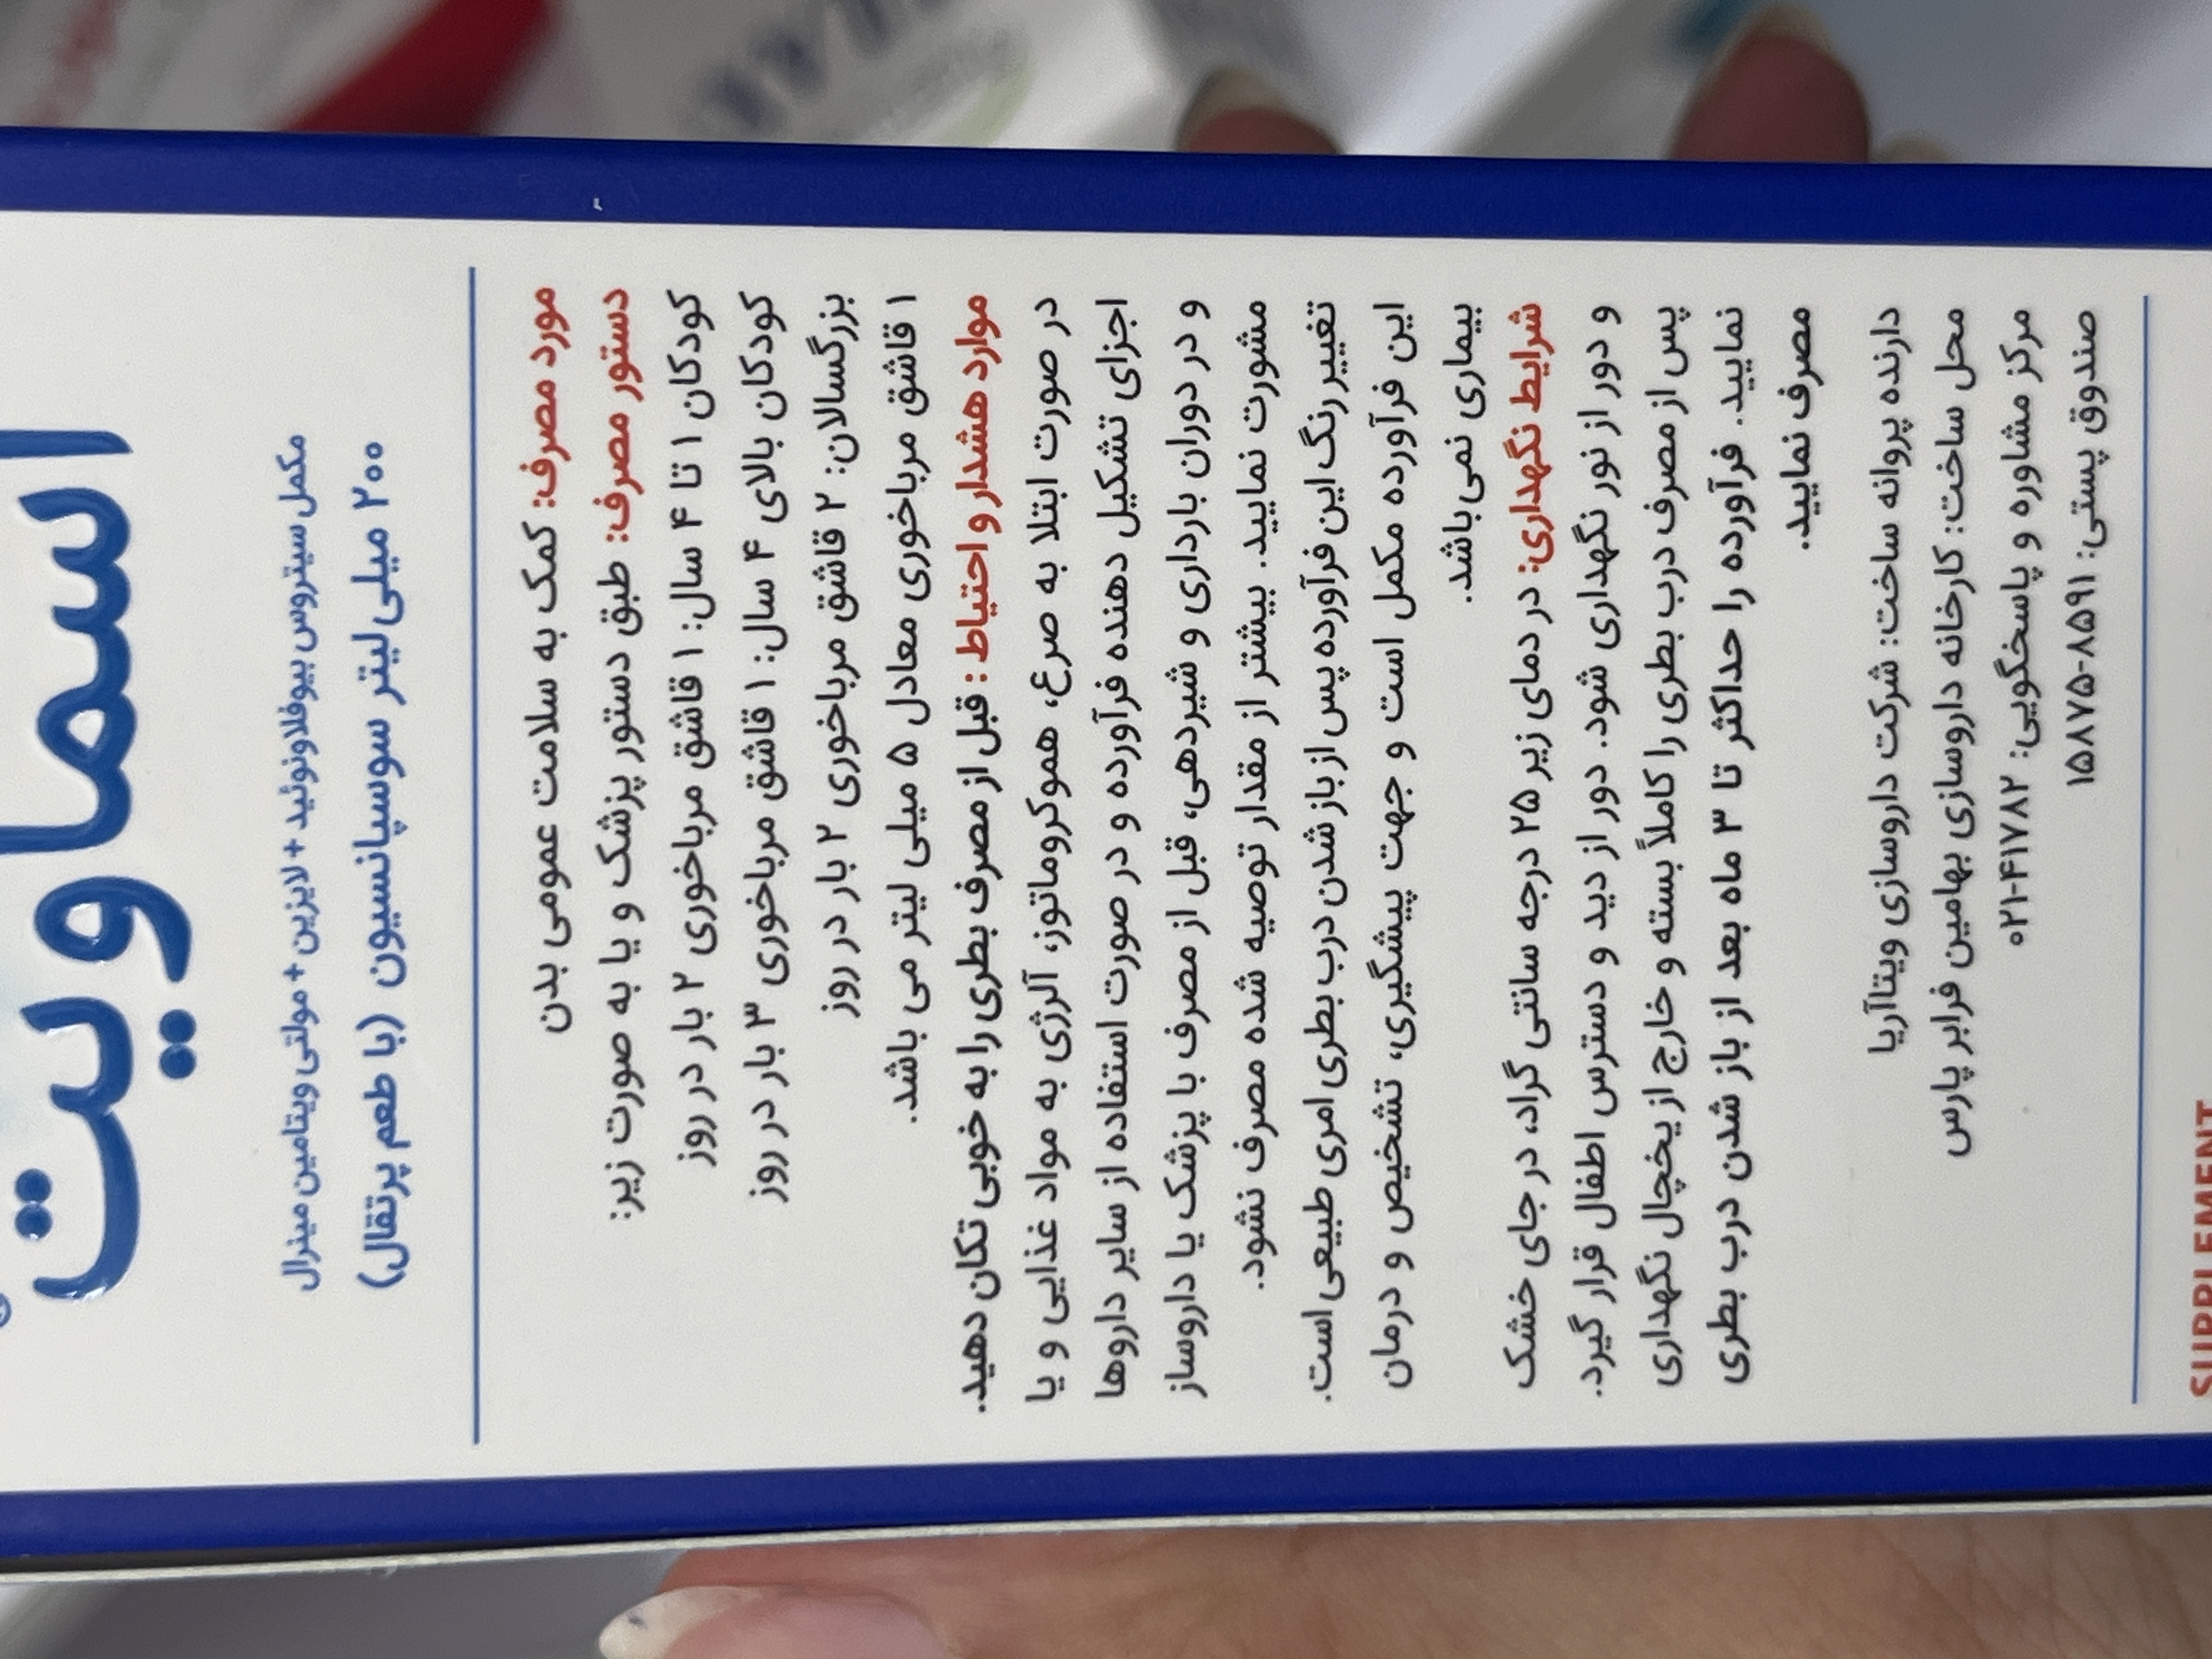 اسماویت
مکمل سیتروس بیوفلاونوئید + لایزین + مولتی ویتامین مینرال
۲۰۰ میلی لیتر سوسپانسیون (با طعم پرتقال)
مورد مصرف: کمک به سلامت عمومی بدن
دستور مصرف: طبق دستور پزشک و یا به صورت زیر:
کودکان ۱ تا ۴ سال: ۱ قاشق مرباخوری ۲ بار در روز
کودکان بالای ۴ سال: ۱ قاشق مرباخوری ۳ بار در روز
بزرگسالان: ۲ قاشق مرباخوری ۲ بار در روز
۱ قاشق مرباخوری معادل ۵ میلی لیتر می باشد.
موارد هشدار و احتیاط : قبل از مصرف بطری را به خوبی تکان دهید.
در صورت ابتلا به صرع، هموکروماتوز، آلرژی به مواد غذایی و یا
اجزای تشکیل دهنده فرآورده و در صورت استفاده از سایر داروها
و در دوران بارداری و شیردهی، قبل از مصرف با پزشک یا داروساز
مشورت نمایید. بیشتر از مقدار توصیه شده مصرف نشود.
تغییر رنگ این فرآورده پس از باز شدن درب بطری امری طبیعی است.
این فرآورده مکمل است و جهت پیشگیری، تشخیص و درمان
بیماری نمی‌باشد.
شرایط نگهداری: در دمای زیر ۲۵ درجه سانتی گراد، در جای خشک
و دور از نور نگهداری شود. دور از دید و دسترس اطفال قرار گیرد.
پس از مصرف درب بطری را کاملاً بسته و خارج از یخچال نگهداری
نمایید. فرآورده را حداکثر تا ۳ ماه بعد از باز شدن درب بطری
مصرف نمایید.
دارنده پروانه ساخت: شرکت داروسازی ویتاآریا
محل ساخت: کارخانه داروسازی بهامین فرابر پارس
مرکز مشاوره و پاسخگویی: ۴۱۷۸۲-۰۲۱
صندوق پستی: ۸۵۹۱-۱۵۸۷۵
SUPPLEMENT